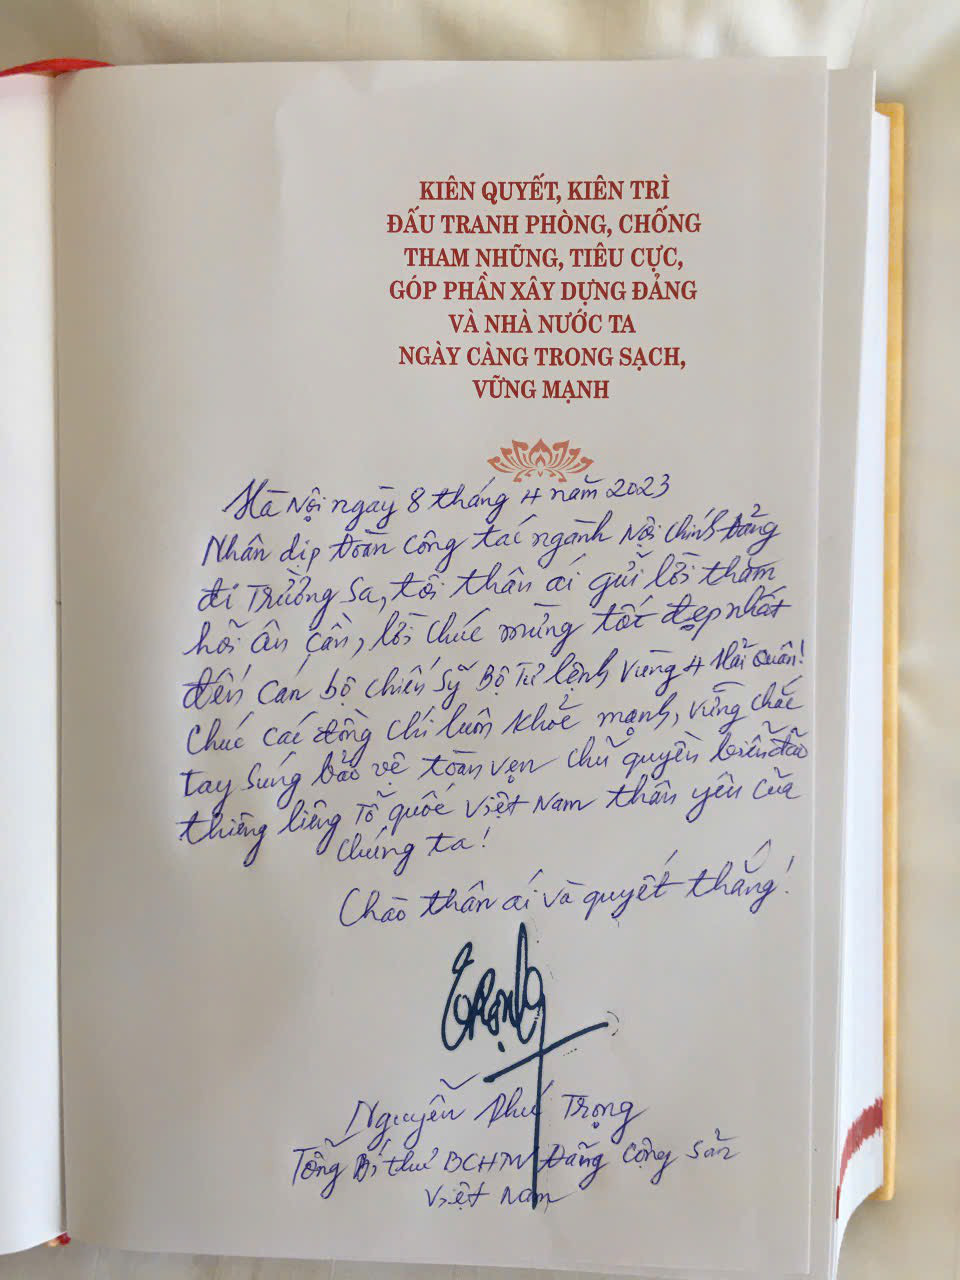 KIÊN QUYẾT, KIÊN TRÌ
ĐẤU TRANH PHÒNG, CHỐNG
THAM NHŨNG, TIÊU CỰC,
GÓP PHẦN XÂY DỰNG ĐẢNG
VÀ NHÀ NƯỚC TA
NGÀY CÀNG TRONG SẠCH,
VỮNG MẠNH
Hà Nội ngày 8 tháng 4 năm 2023
Nhân dịp Đoàn công tác ngành Nội chính Đảng
đi Trường Sa, tôi thân ái gửi lời thăm
hỏi ân cần, lời chúc mừng tốt đẹp nhất
đến cán bộ chiến sỹ Bộ Tư lệnh Vùng 4 Hải Quân!
Chúc các đồng chí luôn khỏe mạnh, vững chắc
tay súng bảo vệ toàn vẹn chủ quyền biển đảo
thiêng liêng Tổ quốc Việt Nam thân yêu của
chúng ta!
Chào thân ái và quyết thắng!
Trọng
Nguyễn Phú Trọng
Tổng Bí thư BCHTW Đảng Cộng sản
Việt Nam